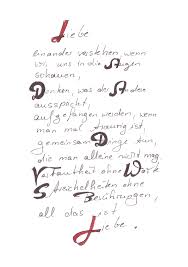 Liebe
einander verstehen, wenn
wir uns in die Augen
schauen,
Denken, was der Andere
ausspricht,
aufgefangen werden, wenn
man mal traurig ist,
gemeinsam Dinge tun,
die man alleine nicht mag,
Vertrautheit ohne Work
Streicheleinheiten ohne
Berührungen,
all das ist
Liebe.